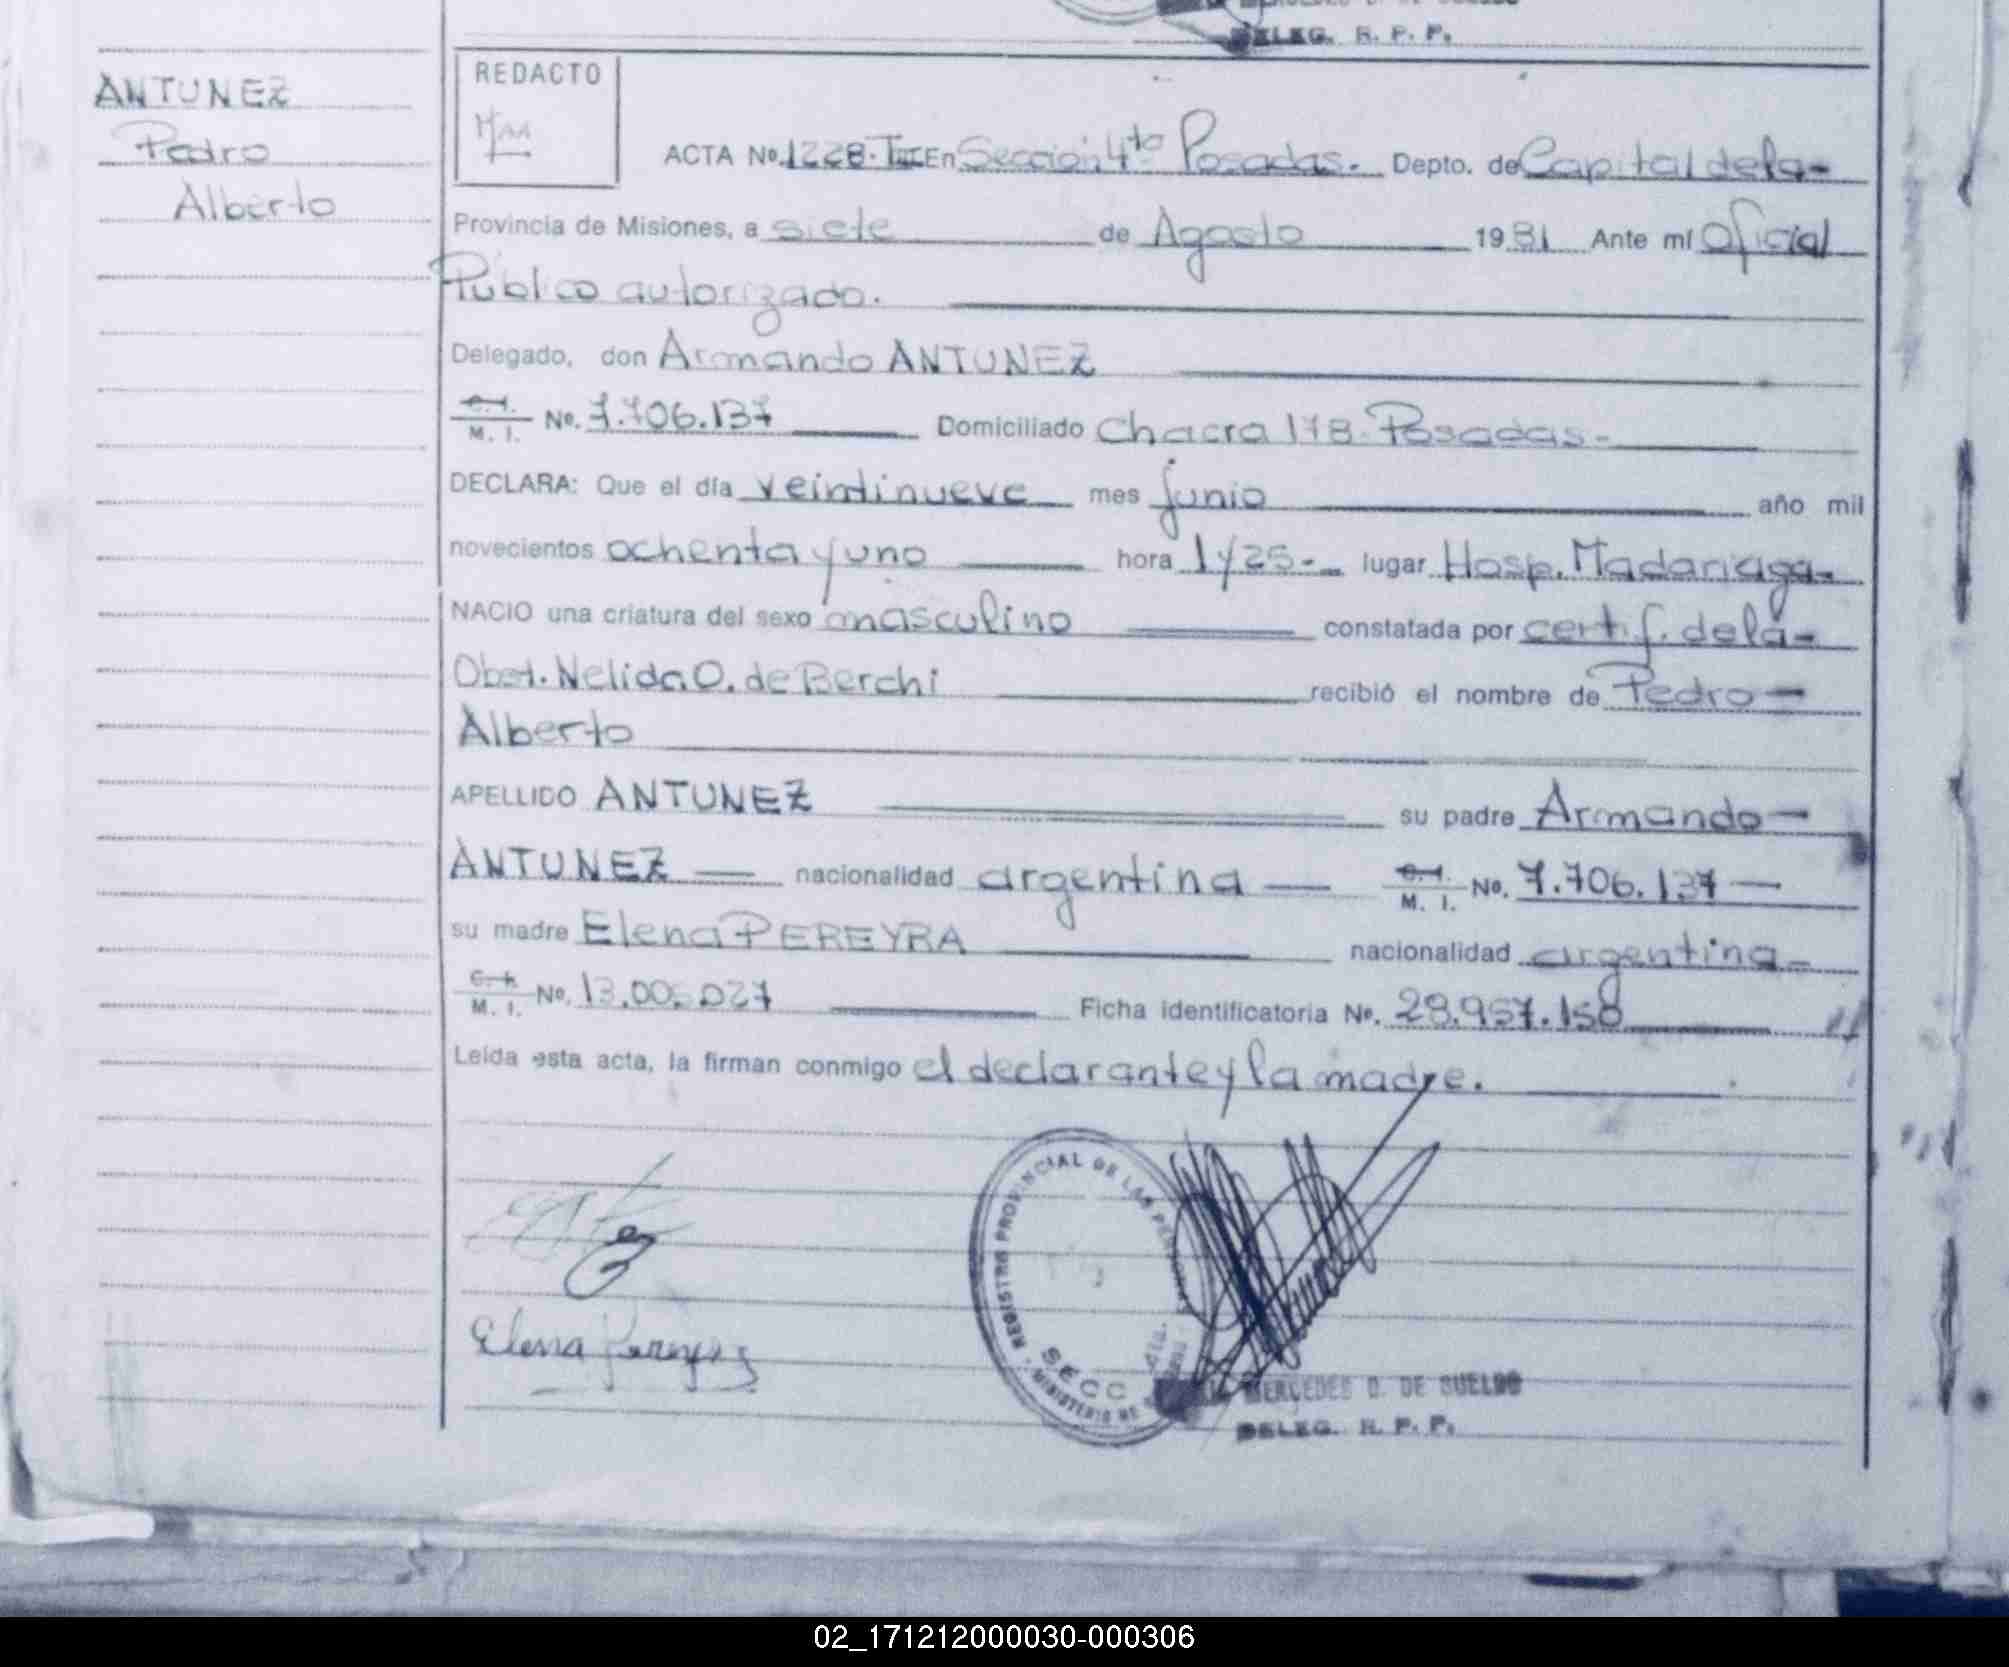 DELEG. R. P. P.
ANTUNEZ
Pedro
Alberto
REDACTO
ACTA No. 1228-T III En Sección 4ta Posadas.- Depto. de Capital de la-
Provincia de Misiones, a siete de Agosto 1981 Ante mí Oficial
Público autorizado.
Delegado, don Armando ANTUNEZ
C.I. / M. I. No. 7.706.137 Domiciliado Chacra 178. Posadas-
DECLARA: Que el día veintinueve mes junio año mil
novecientos ochenta y uno hora 1y25- lugar Hosp. Madariaga-
NACIO una criatura del sexo masculino constatada por certif. de la-
Obst. Nelida O. de Berchi recibió el nombre de Pedro-
Alberto
APELLIDO ANTUNEZ su padre Armando-
ANTUNEZ nacionalidad argentina C.I. / M. I. No. 7.706.137-
su madre Elena PEREYRA nacionalidad argentina-
C.I. / M. I. No. 13.005.027 Ficha identificatoria No. 28.957.158
Leída esta acta, la firman conmigo el declarante y la madre.
REGISTRO PROVINCIAL DE LAS PERSONAS
SECC. 4ta.
MINISTERIO DE
Elena Pereyra
MERCEDES D. DE SUELDO
DELEG. R. P. P.
02_171212000030-000306